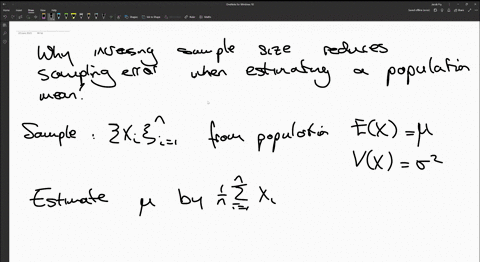 Why increasing sample size reduces
sampling error when estimating a population
mean?
Sample : {X_i}_{i=1}^{n} from population E(X) = μ
V(X) = σ²
Estimate μ by \frac{1}{n} \sum_{i=1}^{n} X_i